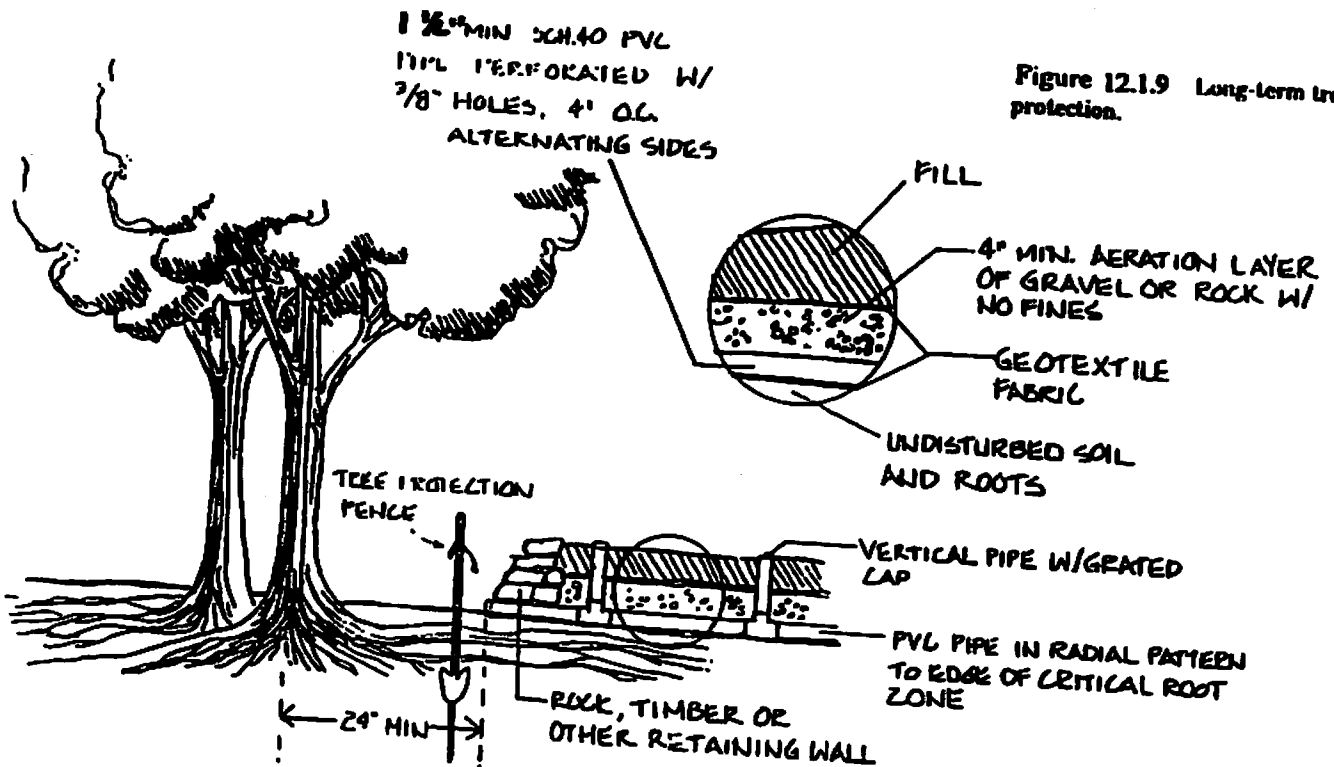 1 ½" MIN SCH.40 PVC
PIPE PERFORATED W/
3/8" HOLES, 4' O.C.
ALTERNATING SIDES
Figure 12.1.9 Long-term
protection.
FILL
4" MIN. AERATION LAYER
OF GRAVEL OR ROCK W/
NO FINES
GEOTEXTILE
FABRIC
UNDISTURBED SOIL
AND ROOTS
TREE PROTECTION
FENCE
VERTICAL PIPE W/GRATED
CAP
PVC PIPE IN RADIAL PATTERN
TO EDGE OF CRITICAL ROOT
ZONE
24" MIN
ROCK, TIMBER OR
OTHER RETAINING WALL